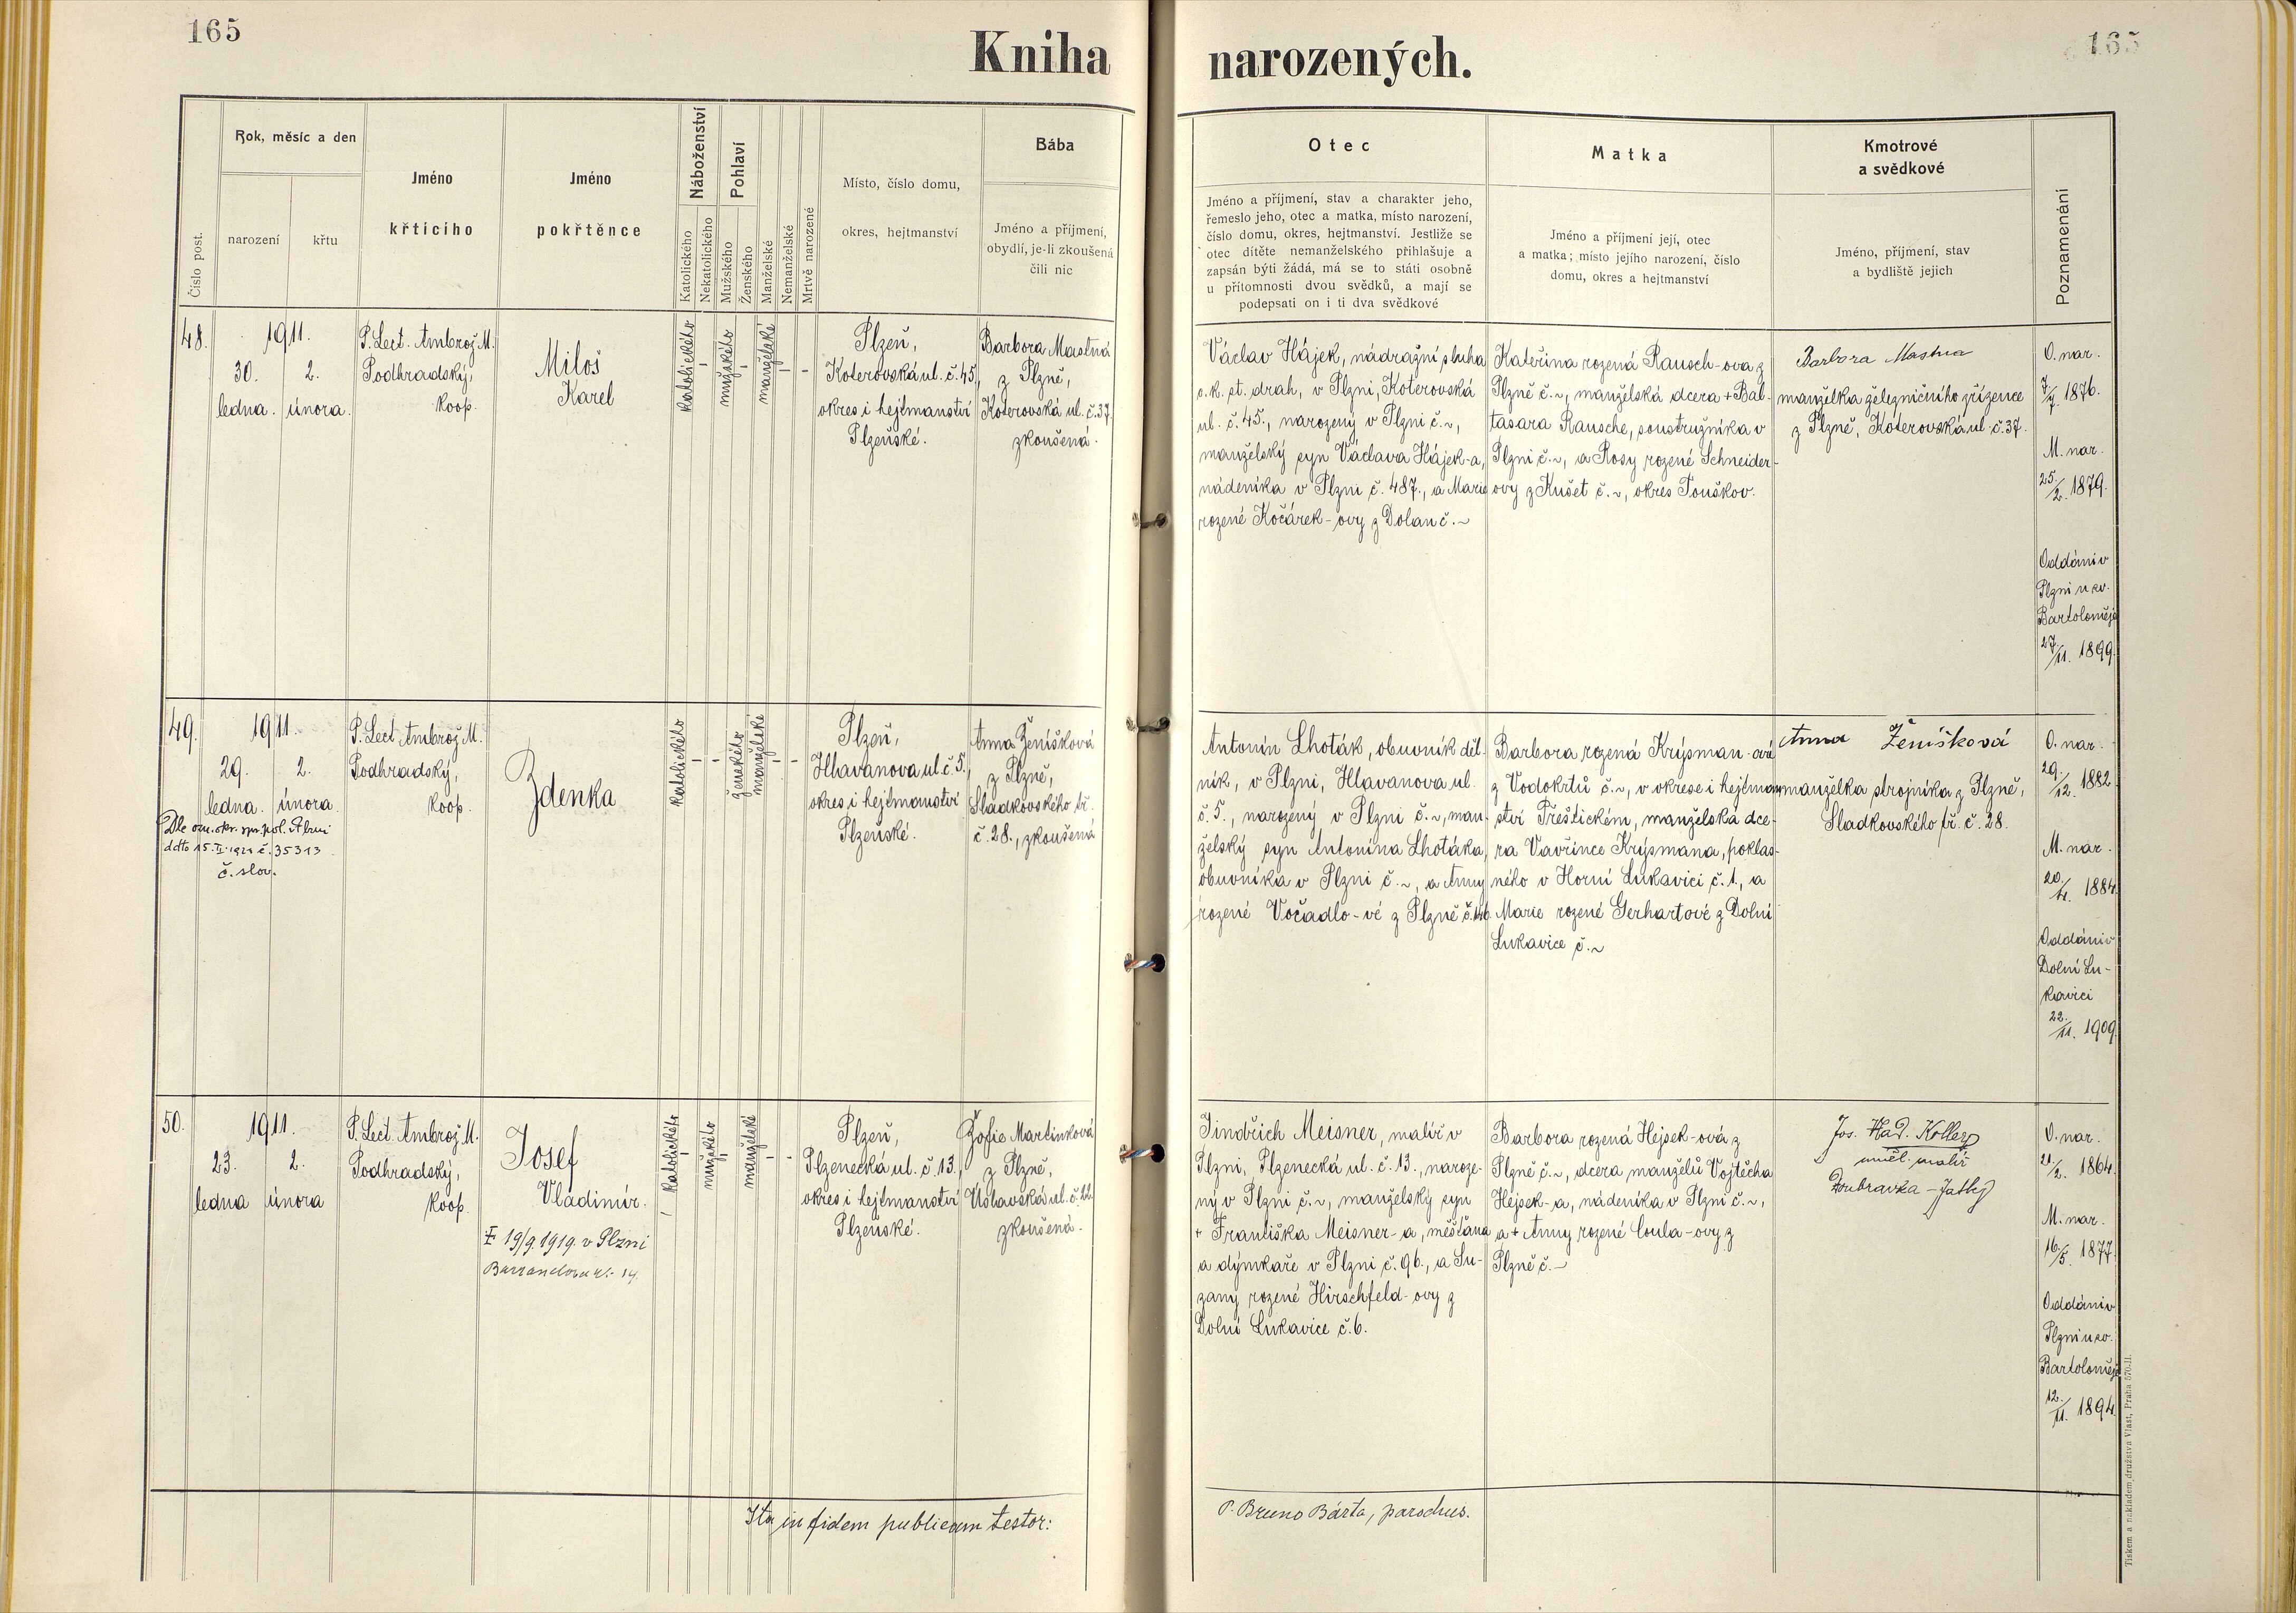 165
Kniha narozených.
165
Číslo post.
Rok, měsíc a den
narození
křtu
Jméno
křticího
Jméno
pokřtěnce
Náboženství
Katolického
Nekatolického
Pohlaví
Mužského
Ženského
Manželské
Nemanželské
Mrtvě narozené
Místo, číslo domu,
okres, hejtmanství
Bába
Jméno a příjmení,
obydlí, je-li zkoušená
čili nic
Otec
Jméno a příjmení, stav a charakter jeho,
řemeslo jeho, otec a matka, místo narození,
číslo domu, okres, hejtmanství. Jestliže se
otec dítěte nemanželského přihlašuje a
zapsán býti žádá, má se to státi osobně
u přítomnosti dvou svědků, a mají se
podepsati on i ti dva svědkové
Matka
Jméno a příjmení její, otec
a matka; místo jejího narození, číslo
domu, okres a hejtmanství
Kmotrové
a svědkové
Jméno, příjmení, stav
a bydliště jejich
Poznamenání
48.
1911.
30. 2.
ledna. února.
P. Lect. Ambrož M.
Podhradský,
koop.
Miloš
Karel
katolického
-
mužského
-
manželské
-
-
Plzeň,
Koterovská ul. č. 45,
okres i hejtmanství
Plzeňské.
Barbora Mastná
z Plzně,
Koterovská ul. č. 37
zkoušená.
Václav Hájek, nádražní sluha
c. k. st. drah, v Plzni, Koterovská
ul. č. 45., narozený v Plzni č. ~,
manželský syn Václava Hájek-a,
nádeníka v Plzni č. 487., a Marie
rozené Kočárek-ovy z Dolan č. ~
Kateřina rozená Rausch-ova z
Plzně č. ~, manželská dcera + Bal-
tasara Rausche, soustružníka v
Plzni č. ~, a Rosy rozené Schneider-
ovy z Kušet č. ~, okres Touškov.
Barbora Mastna
manželka železničního zřízence
z Plzně, Koterovská ul. č. 37.
O. nar.
7/7. 1876.
M. nar.
25./2. 1879.
Oddáni v
Plzni u sv.
Bartoloměje
27/11. 1899.
49.
1911.
29. 2.
ledna. února.
Dle ozn. okr. spr. pol. v Plzni
ddto 15. II. č. 35313
č. slov.
P. Lect. Ambrož M.
Podhradský,
koop.
Zdenka
katolického
-
-
ženského
manželské
-
-
Plzeň,
Hlavanova ul. č. 5.,
okres i hejtmanství
Plzeňské.
Anna Ženíšková
z Plzně,
Sladkovského tř.
č. 28., zkoušená
Antonín Lhoták, obuvník děl-
ník, v Plzni, Hlavanova ul.
č. 5., narozený v Plzni č. ~, man-
želský syn Antonína Lhotáka,
obuvníka v Plzni č. ~, a Anny
rozené Vočadlo-vé z Plzně č. 46.
Barbora rozená Krýsman-ová
z Vodokrtů č. ~, v okrese i hejtman-
ství Přeštickém, manželská dce-
ra Vavřince Krýsmana, poklas-
ného v Horní Lukavici č. 1., a
Marie rozené Gerhartové z Dolní
Lukavice č. ~
Anna Ženíšková
manželka strojníka z Plzně,
Sladkovského tř. č. 28.
O. nar.
29./12. 1882.
M. nar.
1884.
Oddáni v
Dolní Lu-
kavici
22./11. 1909.
50.
1911.
23. 2.
ledna února
P. Lect. Ambrož M.
Podhradský,
koop.
Josef
Vladimír.
‡ 19/9. 1919. v Plzni
Barrandova ul. 14.
katolického
-
mužského
-
manželské
-
-
Plzeň,
Plzenecká ul. č. 13.,
okres i hejtmanství
Plzeňské.
Žofie Martinková
z Plzně,
Úslavská ul. č. 22
zkoušená.
Jindřich Meisner, malíř v
Plzni, Plzenecká ul. č. 13., naroze-
ný v Plzni č. ~, manželský syn
+ Františka Meisner-a, měšťana
a dýmkaře v Plzni č. 96., a Su-
zany rozené Hirschfeld-ovy z
Dolní Lukavice č. 6.
Barbora rozená Hejsek-ová z
Plzně č. ~, dcera manželů Vojtěcha
Hejsek-a, nádeníka v Plzni č. ~,
a + Anny rozené Coula-ovy z
Plzně č. ~
Jos. Koller
uměl. malíř
Doubravka
O. nar.
21/2. 1864.
M. nar.
16./5. 1877.
Oddáni v
Plzni u sv.
Bartoloměje
12./11. 1894.
Ita in fidem publicam testor:
P. Bruno Bárta, parochus.
Tiskem a nakladem družstva Vlast, Praha 570-II.